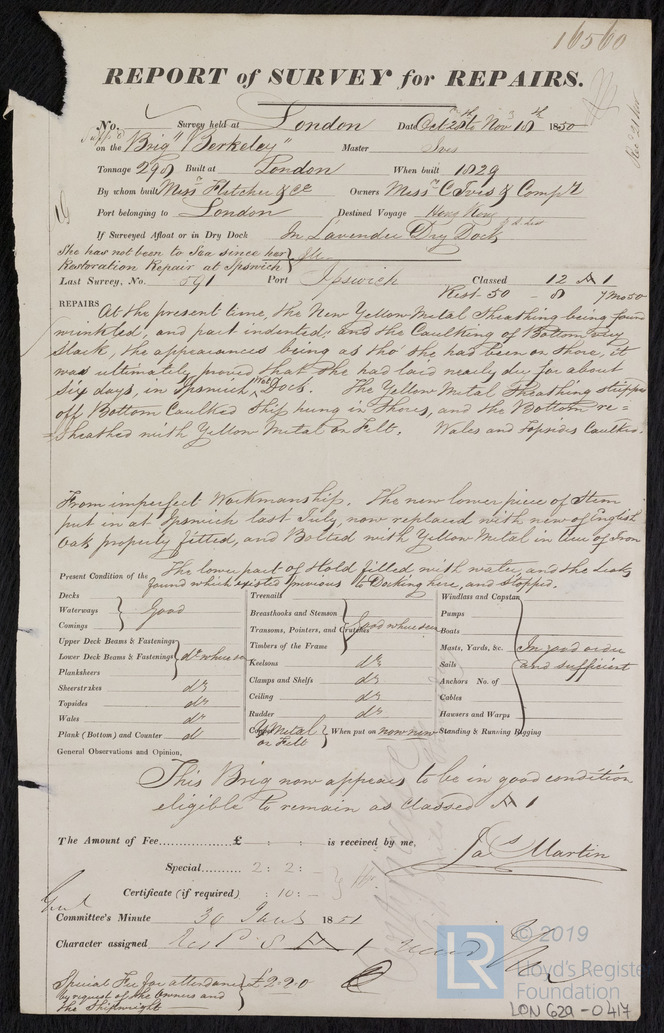 16560
REPORT of SURVEY for REPAIRS.
No. Survey held at London Date Oct 28th to Nov 18th 1850
on the Brig "Berkeley" Master Ives
Tonnage 298 Built at London When built 1829
By whom built Messrs Fletcher & Co Owners Messrs C Ives & Comp
Port belonging to London Destined Voyage Hong Kong
If Surveyed Afloat or in Dry Dock In Lavender Dry Dock
She has not been to Sea since her
Restoration Repair at Ipswich
Last Survey, No. 591 Port Ipswich Classed 12 A 1
Rest. 50 - 8 7 Mo 50
REPAIRS At the present time, the New Yellow Metal Sheathing being found
wrinkled, and part indented; and the Caulking of Bottom very
Slack, the appearances being as tho' she had been on Shore, it
was ultimately proved that she had laid nearly dry for about
Six days, in Ipswich Wet Dock. The Yellow Metal Sheathing stripped
off Bottom Caulked Ship hung in Shores, and the Bottom re=
=Sheathed with Yellow Metal on Felt. Wales and Topsides Caulked.
From imperfect Workmanship. The new lower piece of Stem
put in at Ipswich last July, now replaced with new of English
Oak properly fitted, and Bolted with Yellow Metal in lieu of Iron
The lower part of Hold filled with water, and the Leaks
Present Condition of the found which existed previous to Docking here, and stopped.
Decks
Waterways Good
Comings
Upper Deck Beams & Fastenings
Lower Deck Beams & Fastenings do where seen
Planksheers
Sheerstrakes do
Topsides do
Wales do
Plank (Bottom) and Counter do
Treenails
Breasthooks and Stemson
Transoms, Pointers, and Crutches Good where seen
Timbers of the Frame
Keelsons do
Clamps and Shelfs do
Ceiling do
Rudder do
Copper Y Metal on Felt When put on now new
Windlass and Capstan
Pumps
Boats
Masts, Yards, &c. In good order
Sails and sufficient
Anchors No. of
Cables
Hawsers and Warps
Standing & Running Rigging
General Observations and Opinion,
This Brig now appears to be in good condition
eligible to remain as classed A 1
The Amount of Fee £ : : is received by me,
Special 2 : 2 : -
Jas Martin
Certificate (if required) : 10 : -
Committee's Minute 30 1851
Character assigned A 1
Special Fee for attendance £2-2-0
by request of the Owners and
the Shipwright
LR
© 2019
Lloyd's Register
Foundation
LON 629-0417